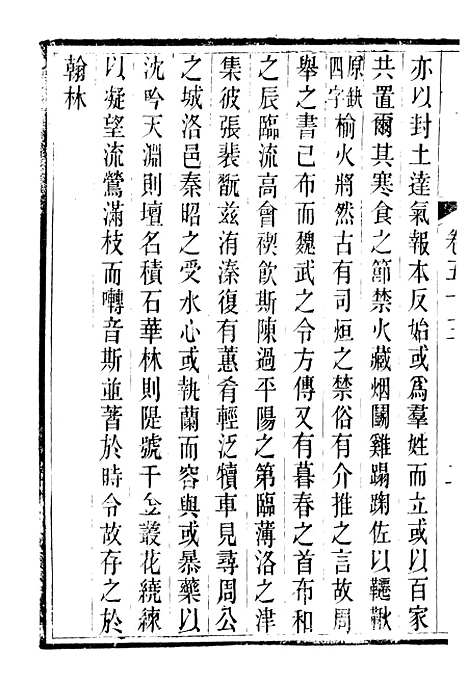 卷五十三
亦以封土達氣報本反始或爲羣姓而立或以百家
共置爾其寒食之節禁火藏烟鬭雞蹋踘佐以鞦韆
原缺四字榆火將然古有司烜之禁俗有介推之言故周
舉之書已布而魏武之令方傳又有暮春之首布和
之辰臨流高會禊飲斯陳過平陽之第臨薄洛之津
集彼張裴翫兹洧溱復有蕙肴輕泛犢車見尋周公
之城洛邑秦昭之受水心或執蘭而容與或暴藥以
沈吟天淵則壇名積石華林則隄號千金叢花繞練
以凝望流鶯滿枝而囀音斯並著於時令故存之於
翰林